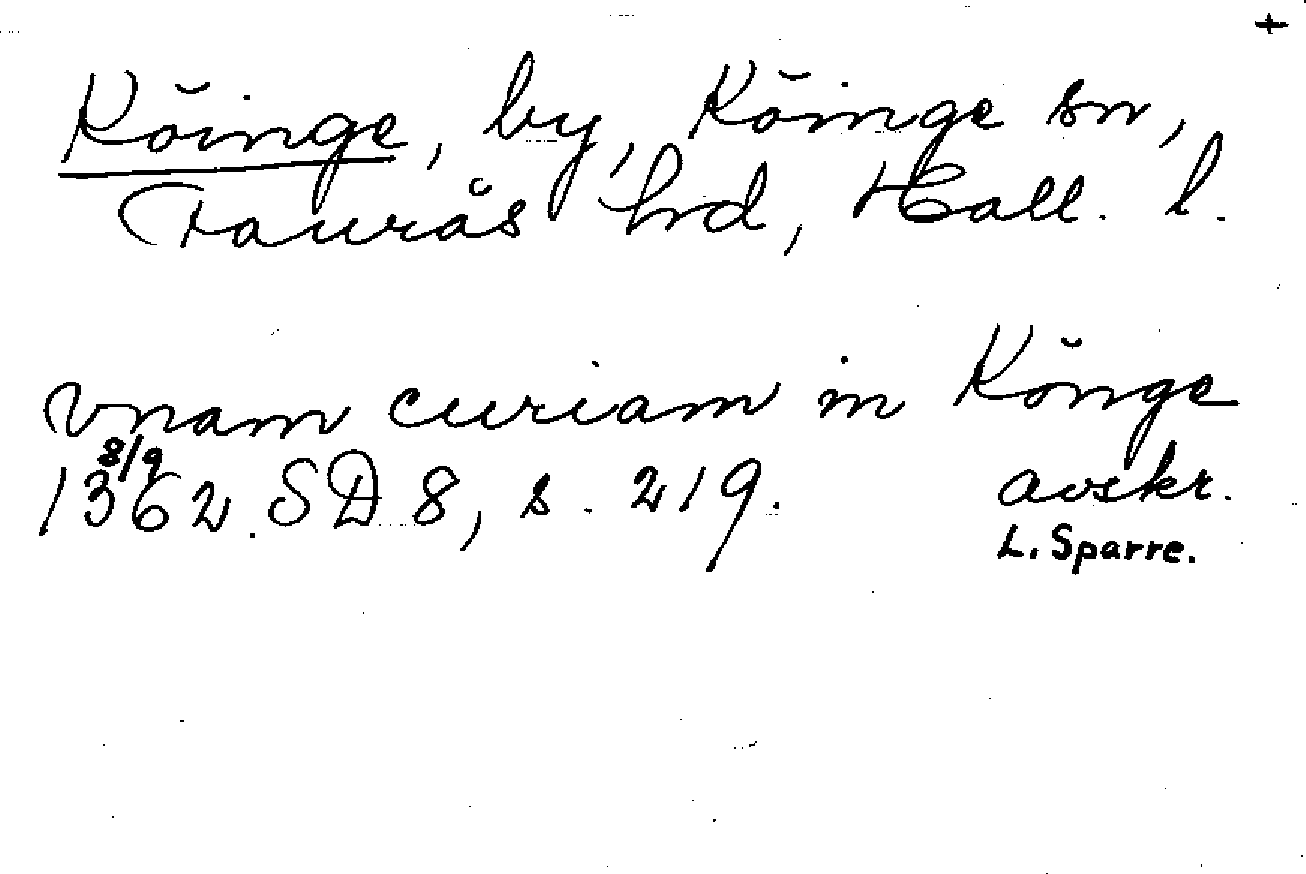 +
Köinge, by, Köinge sn,
Faurås hd, Hall. l.
Vnam curiam in Könge
8/9
1362. SD 8, s. 219. avskr.
L. Sparre.